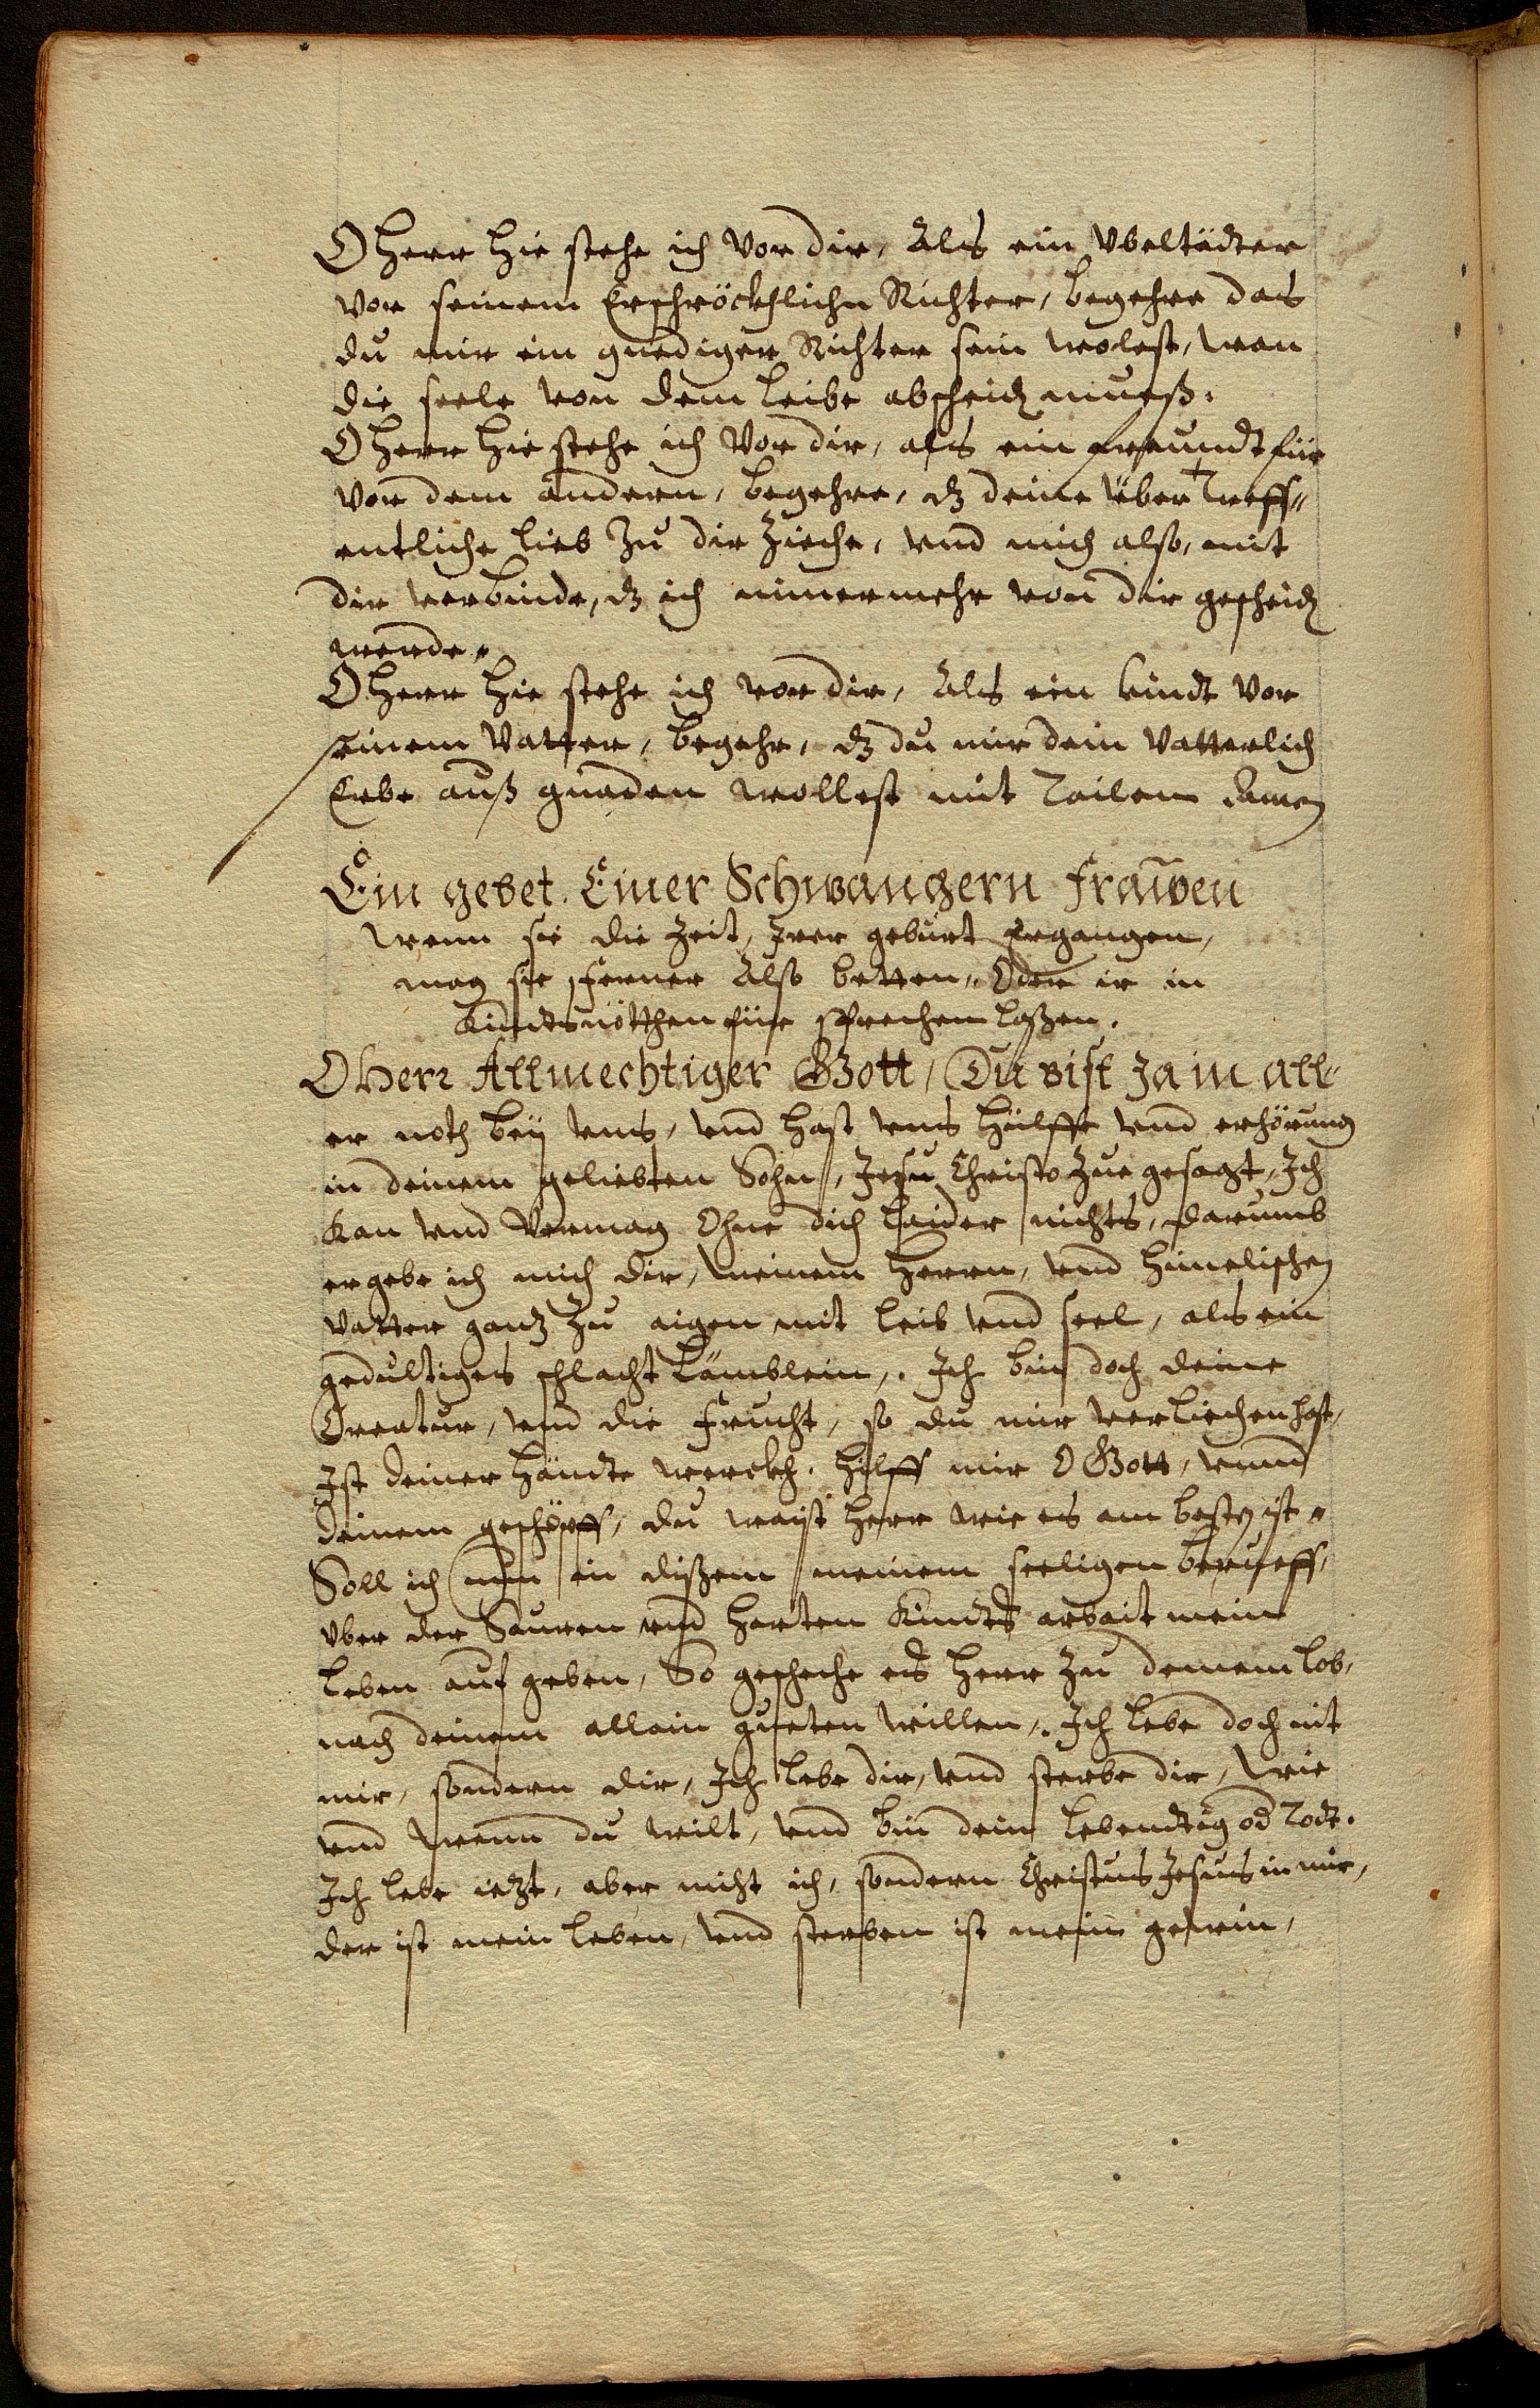 O Herr hie stehe ich vor dir, Als ein Vbeltädter
vor seinem Erschröckhlichn Richter, begehre das
du mir ein gnediger Richter sein wolest, wan
die seele von dem leibe abscheidn mueß.
O Herr hie stehe ich vor dir, als ein freundt für
vor dem andern, begehre, dz deine über treff„
entliche lieb zu dir Zieche, vnd mich also, mit
dir verbinde, dz ich nimermehr von dir gescheidn
werde„
O Herr hie stehe ich vor dir, Als ein kindt vor
seinem Vatter, begehr, dz du mir dein Vatterlich
Erbe auß gnaden wollest mit Tailen Amen
Ein gebet. Einer Schwangern Frauwen
Wenn sie die Zeit, Irer geburt Ergangen,
mag sie Ferner Also betten„ Oder ir in
Kindtsnötthen für sprechen laßen.
O Herr Allmechtiger Gott, Du bist Ja in all„
er noth bey vns, vnd hast vns hülffe vnd erhörung
in deinem geliebten Sohn, Jesu Christo Zue gesagt, Ich
kan vnd Vermag Ohne dich laider nichts, Darumb
ergebe ich mich dir, meinem Herrn, vnd himelischen
Vatter ganz Zu aigen mit leib vnd seel, als ein
gedultiges schlacht Lämblein,. Ich bin doch deine
Creatur, vnd die Frucht, so du mir verliechen hast,
Ist deiner Händte werckh. Hilff mir O Gott, vnnd
deinem geschöpff, du waist Herr wie es am bestn ist„
Soll ich nun in dißem meinem seeligen beruff,
vber der Sauren vnd harten Kindts arbait mein
leben auf geben, So gescheche es Herr Zu deinem lob,
nach deinem allain gueten willen,. Ich lebe doch nit
mir, sondern dir, Ich lebe dir, vnd sterbe dir, Wie
vnd wenn du wilt, vnd bin dein lebendtig od Todt.
Ich lebe ietzt, aber nicht ich, sondern Christus Jesus in mir,
der ist mein leben, vnd sterben ist mein gewin,